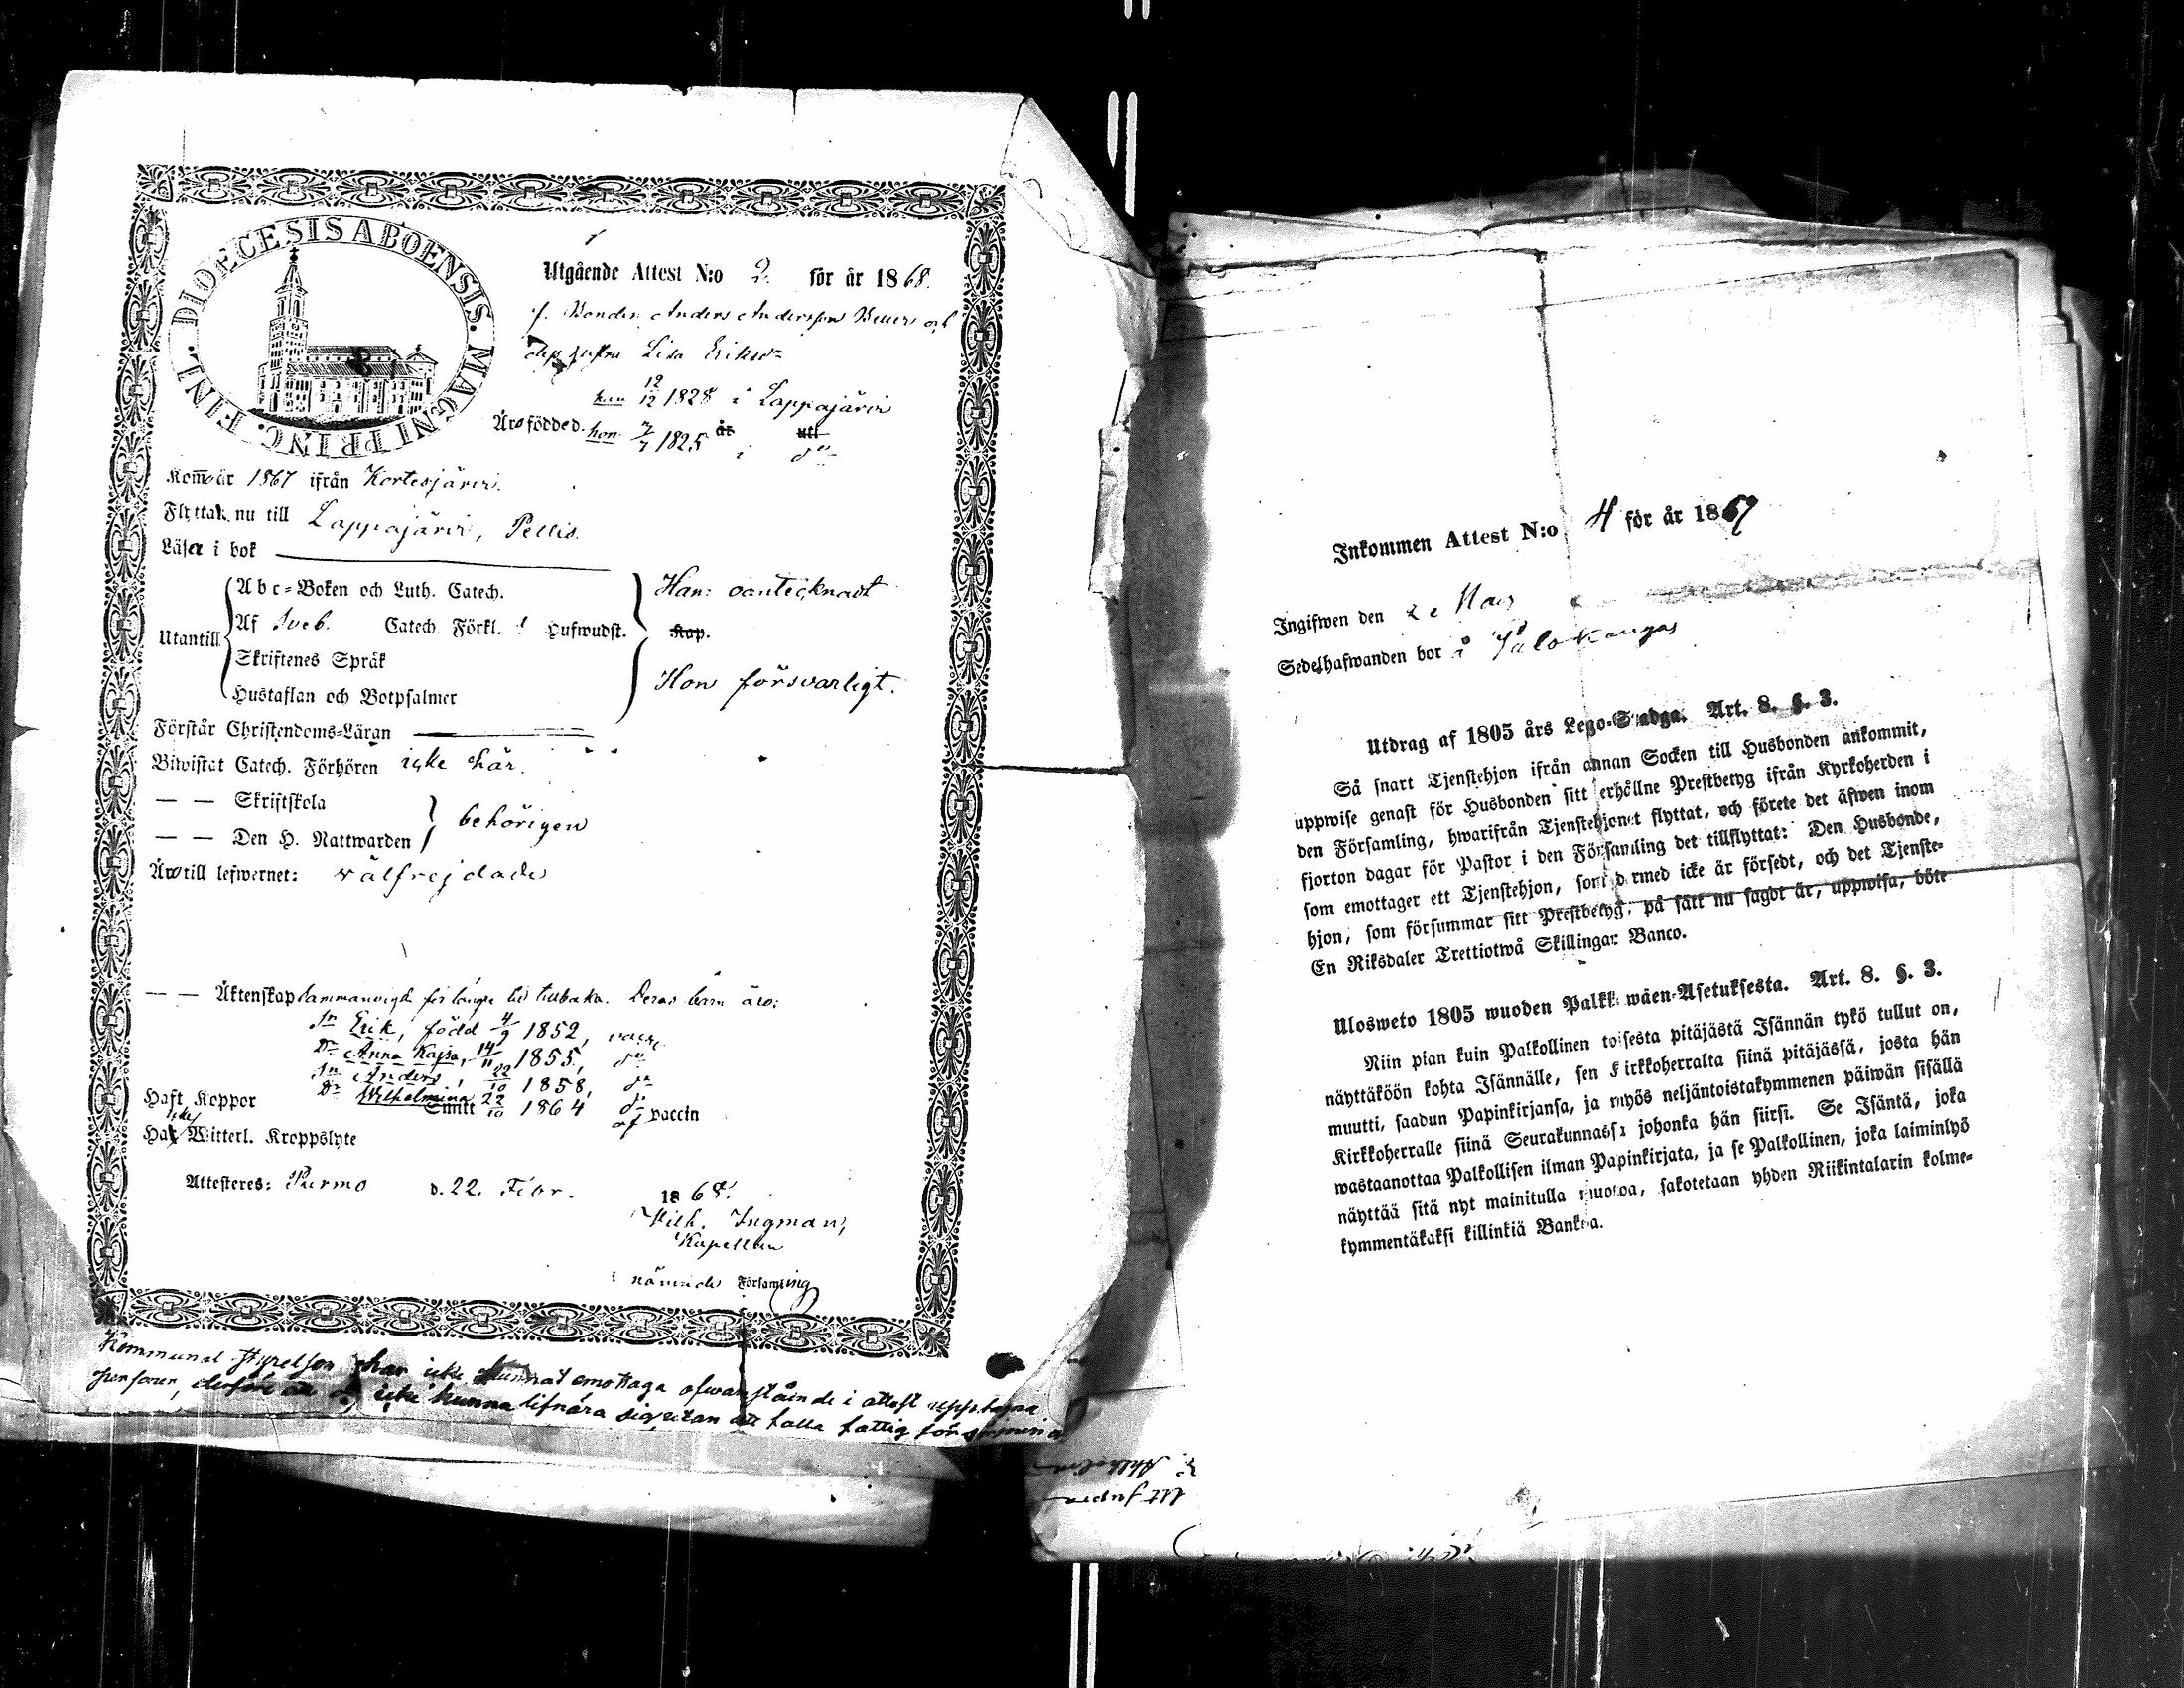 DIOECESIS ABOENSIS. MAGNI PRINC. FINL.
Utgående Attest N:o 2. för år 1868.
f. Bonden Anders Andersson och
Lisa Eriksdr
han 12/12 1828 i Lappajärvi
Äro födde d. hon 7/7 1825 år i utl do
Kommo år 1867 ifrån Kortesjärvi.
Flyttak nu till Lappajärvi, Pellis.
Läsa i bok
Abc-Boken och Luth. Catech.
Utantill Af Sveb. Catech. Förkl. Hufwudst. Kap.
Skriftenes Språk
Hustaflan och Botpsalmer
Han: oantecknadt
Hon försvarligt.
Förstår Christendoms-Läran
Biwistat Catech. Förhören icke här.
— — Skriftskola
— — Den H. Nattwarden behörigen
Äro till lefwernet: välfrejdade
— — Äktenskap sammanvigde för längre tid tillbaka. Deras barn äro:
Sn Erik, född 4/9 1852, vacc.
Dr Anna Kajsa, 14/11 1855, do
Sn Anders, 22/10 1858, do
Dr Wilhelmina 22/10 1864 do
Haft Koppor Smitt af vaccin
Haf icke Witterl. Kroppslyte
Attesteres: Purmo d. 22. Febr. 1868.
Wilh. Ingman,
Kapellan
i nämnde Församling
Kommunal styrelsen har icke kunnat emottaga ofwanstående i attest upptagna
personer, derföre att de icke kunna lifnära sig utan att falla fattig
Inkommen Attest N:o 4 för år 1867
Ingifwen den 2 Mars
Sedelhafwanden bor å Palokangas
Utdrag af 1805 års Lego-Stadga. Art. 8. §. 3.
Så snart Tjenstehjon ifrån annan Socken till Husbonden ankommit,
uppwise genast för Husbonden sitt erhållne Prestbetyg ifrån Kyrkoherden i
den Församling, hwarifrån Tjenstehjonet flyttat, och förete det äfwen inom
fjorton dagar för Pastor i den Församling det tillflyttat: Den Husbonde,
som emottager ett Tjenstehjon, som dermed icke är försedt, och det Tjenste-
hjon, som försummar sitt Prestbetyg, på sätt nu sagdt är, uppwisa, böte
En Riksdaler Trettiotwå Skillingar Banco.
Ulosweto 1805 wuoden Palkkawäen-Asetuksesta. Art. 8. §. 3.
Niin pian kuin Palkollinen toisesta pitäjästä Isännän tykö tullut on,
näyttäköön kohta Isännälle, sen Kirkkoherralta siinä pitäjässä, josta hän
muutti, saadun Papinkirjansa, ja myös neljäntoistakymmenen päiwän sisällä
Kirkkoherralle siinä Seurakunnassa johonka hän siirsi. Se Isäntä, joka
wastaanottaa Palkollisen ilman Papinkirjata, ja se Palkollinen, joka laiminlyö
näyttää sitä nyt mainitulla muotoa, sakotetaan yhden Riikintalarin kolme-
kymmentäkaksi killinkiä Bankoa.